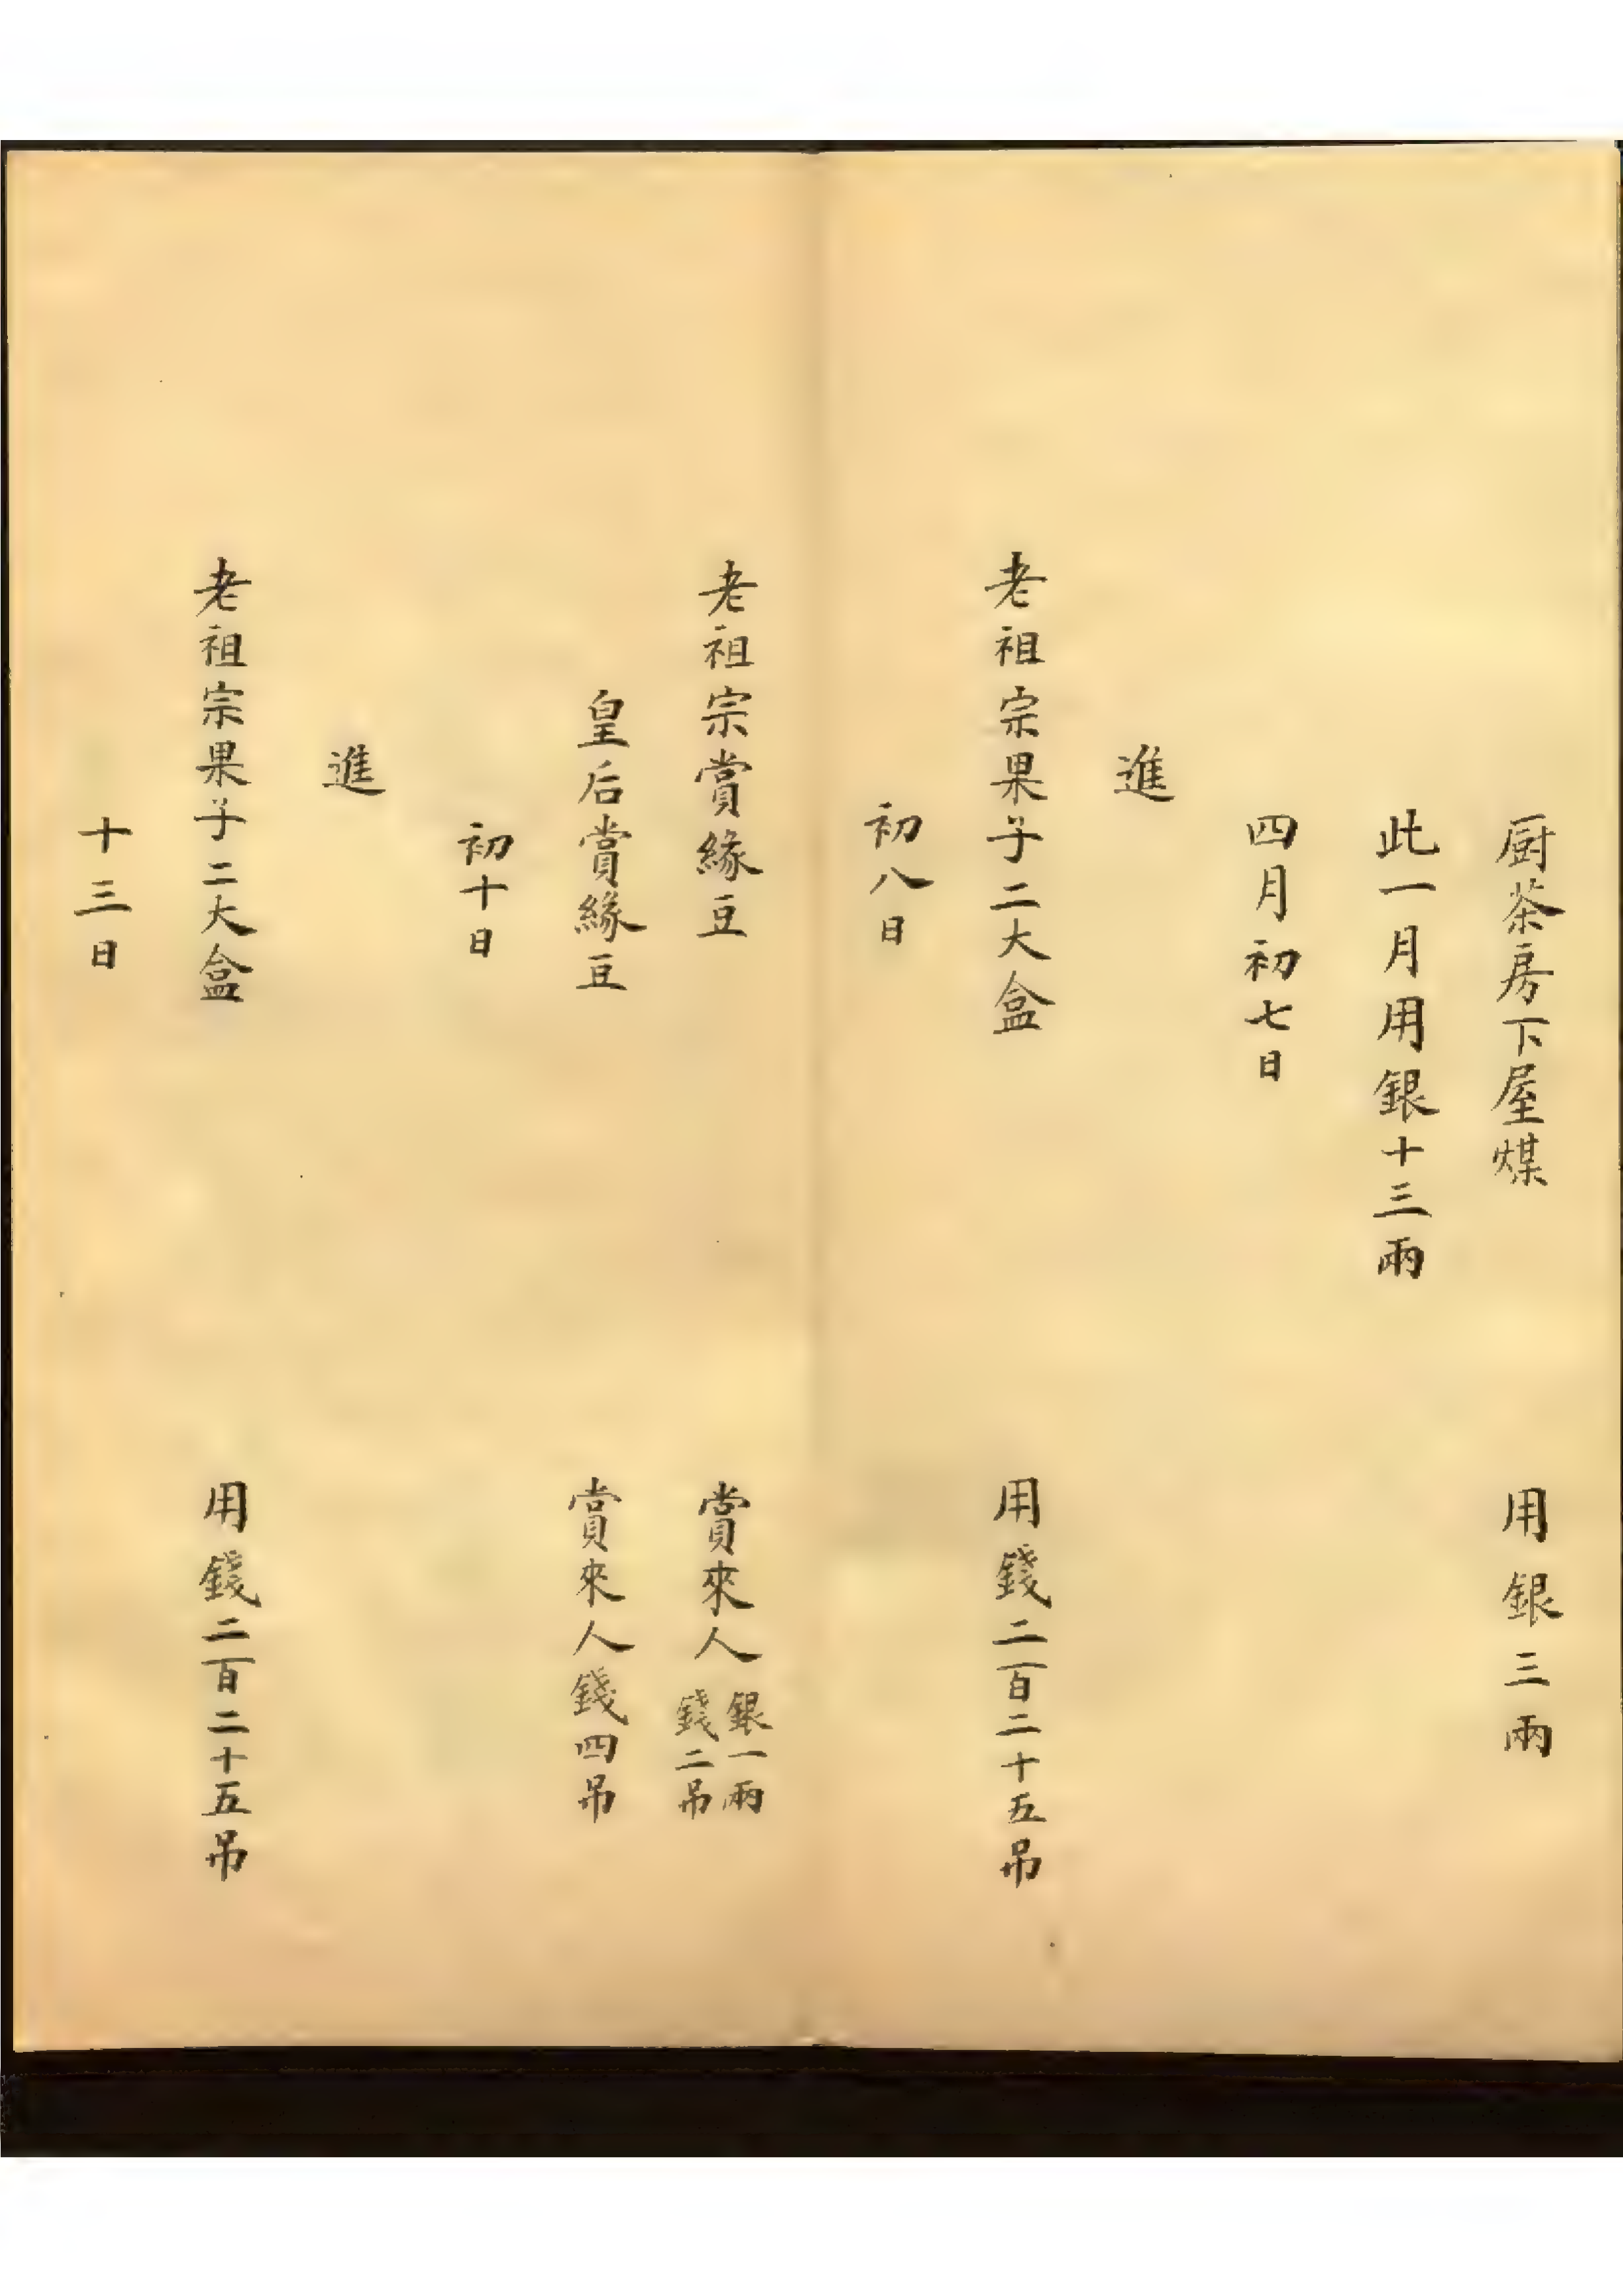 厨茶房下屋煤　用銀三兩
此一月用銀十三兩
四月初七日
進
老祖宗果子二大盒　用錢二百二十五吊
初八日
老祖宗賞緣豆　賞來人銀一兩錢二吊
皇后賞緣豆　賞來人錢四吊
初十日
進
老祖宗果子二大盒　用錢二百二十五吊
十三日